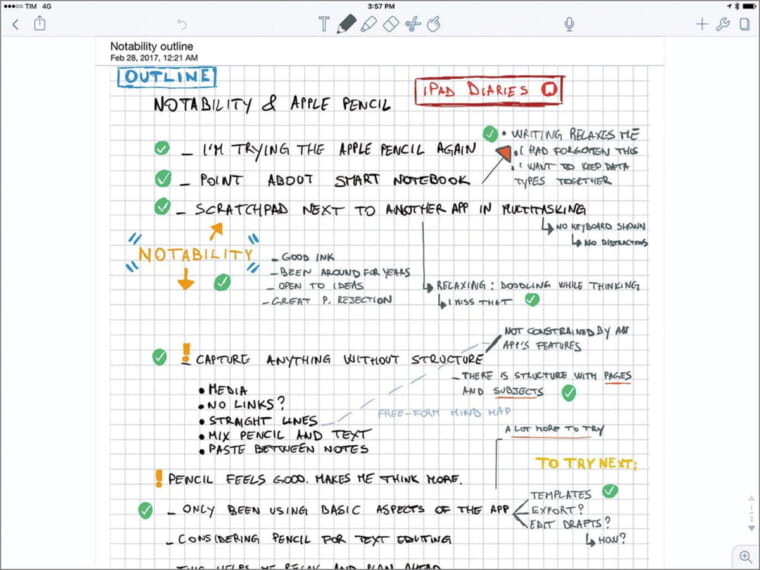 TIM 4G
3:57 PM
Notability outline
Feb 28, 2017, 12:21 AM
OUTLINE
iPAD DIARIES
NOTABILITY & APPLE PENCIL
- I'M TRYING THE APPLE PENCIL AGAIN
• WRITING RELAXES ME
• I HAD FORGOTTEN THIS
• I WANT TO KEEP DATA
TYPES TOGETHER
- POINT ABOUT SMART NOTEBOOK
- SCRATCHPAD NEXT TO ANOTHER APP IN MULTITASKING
NO KEYBOARD SHOWN
NO DISTRACTIONS
"NOTABILITY"
- GOOD INK
- BEEN AROUND FOR YEARS
- OPEN TO IDEAS
- GREAT P. REJECTION
RELAXING: DOODLING WHILE THINKING
I MISS THAT
! - CAPTURE ANYTHING WITHOUT STRUCTURE
NOT CONSTRAINED BY AN
APP'S FEATURES
- THERE IS STRUCTURE WITH PAGES
AND SUBJECTS
• MEDIA
• NO LINKS?
• STRAIGHT LINES
• MIX PENCIL AND TEXT
• PASTE BETWEEN NOTES
FREE-FORM MIND MAP
A LOT MORE TO TRY
! PENCIL FEELS GOOD. MAKES ME THINK MORE.
TO TRY NEXT:
- ONLY BEEN USING BASIC ASPECTS OF THE APP
TEMPLATES
EXPORT?
EDIT DRAFTS?
HOW?
- CONSIDERING PENCIL FOR TEXT EDITING
- THIS HELPS ME RELAX AND PLAN AHEAD
1
2